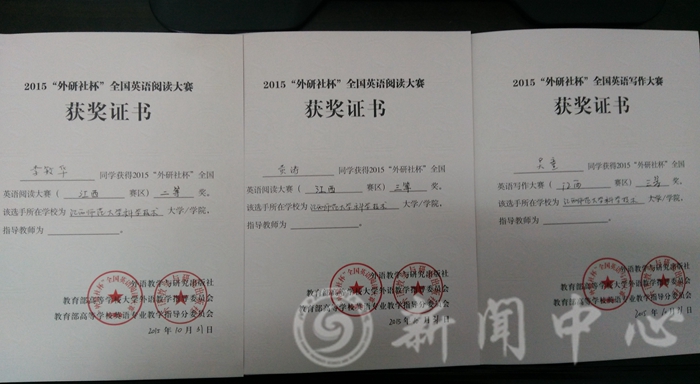 2015 “外研社杯” 全国英语阅读大赛
获奖证书
李敏华 同学获得2015 “外研社杯” 全国
英语阅读大赛（ 江西 赛区）二等 奖。
该选手所在学校为 江西师范大学科学技术 大学/学院，
指导教师为
外语教学与研究出版社
教育部高等学校大学外语教学指导委员会
教育部高等学校英语专业教学指导分委员会
2015 年 10 月 31 日
2015 “外研社杯” 全国英语阅读大赛
获奖证书
同学获得2015 “外研社杯” 全国
英语阅读大赛（ 江西 赛区）三等 奖。
该选手所在学校为 江西师范大学科学技术 大学/学院，
指导教师为
外语教学与研究出版社
教育部高等学校大学外语教学指导委员会
教育部高等学校英语专业教学指导分委员会
2015 “外研社杯” 全国英语写作大赛
获奖证书
同学获得2015 “外研社杯” 全国
英语写作大赛（ 江西 赛区） 奖。
该选手所在学校为 江西师范大学科学技术 大学/学院，
指导教师为
外语教学与研究出版社
教育部高等学校大学外语教学指导委员会
教育部高等学校英语专业教学指导分委员会
新闻中心